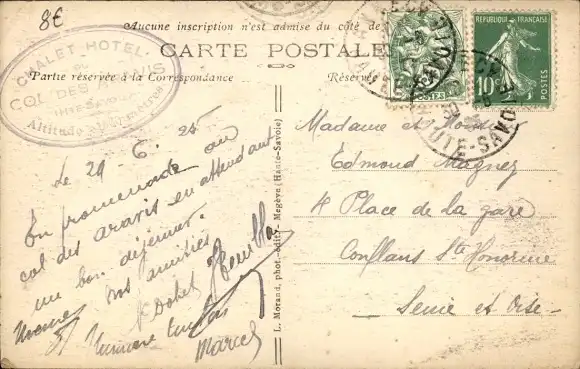 8€
Aucune inscription n'est admise du côté de
CARTE POSTALE
Partie réservée à la Correspondance
Réservé
CHALET HOTEL
DU
COL DES ARAVIS
Altitude
RÉPUBLIQUE FRANÇAISE
10c
POSTES
POSTES
HAUTE-SAVOIE
Le 29-6-25
En promenade au
col des aravis en attendant
un bon déjeuner.
nos amitiés
Marcel
L. Morand, phot.-édit., Megève (Haute-Savoie)
Madame et
Edmond Magnez
4 Place de la gare
Conflans Ste Honorine
Seine et Oise